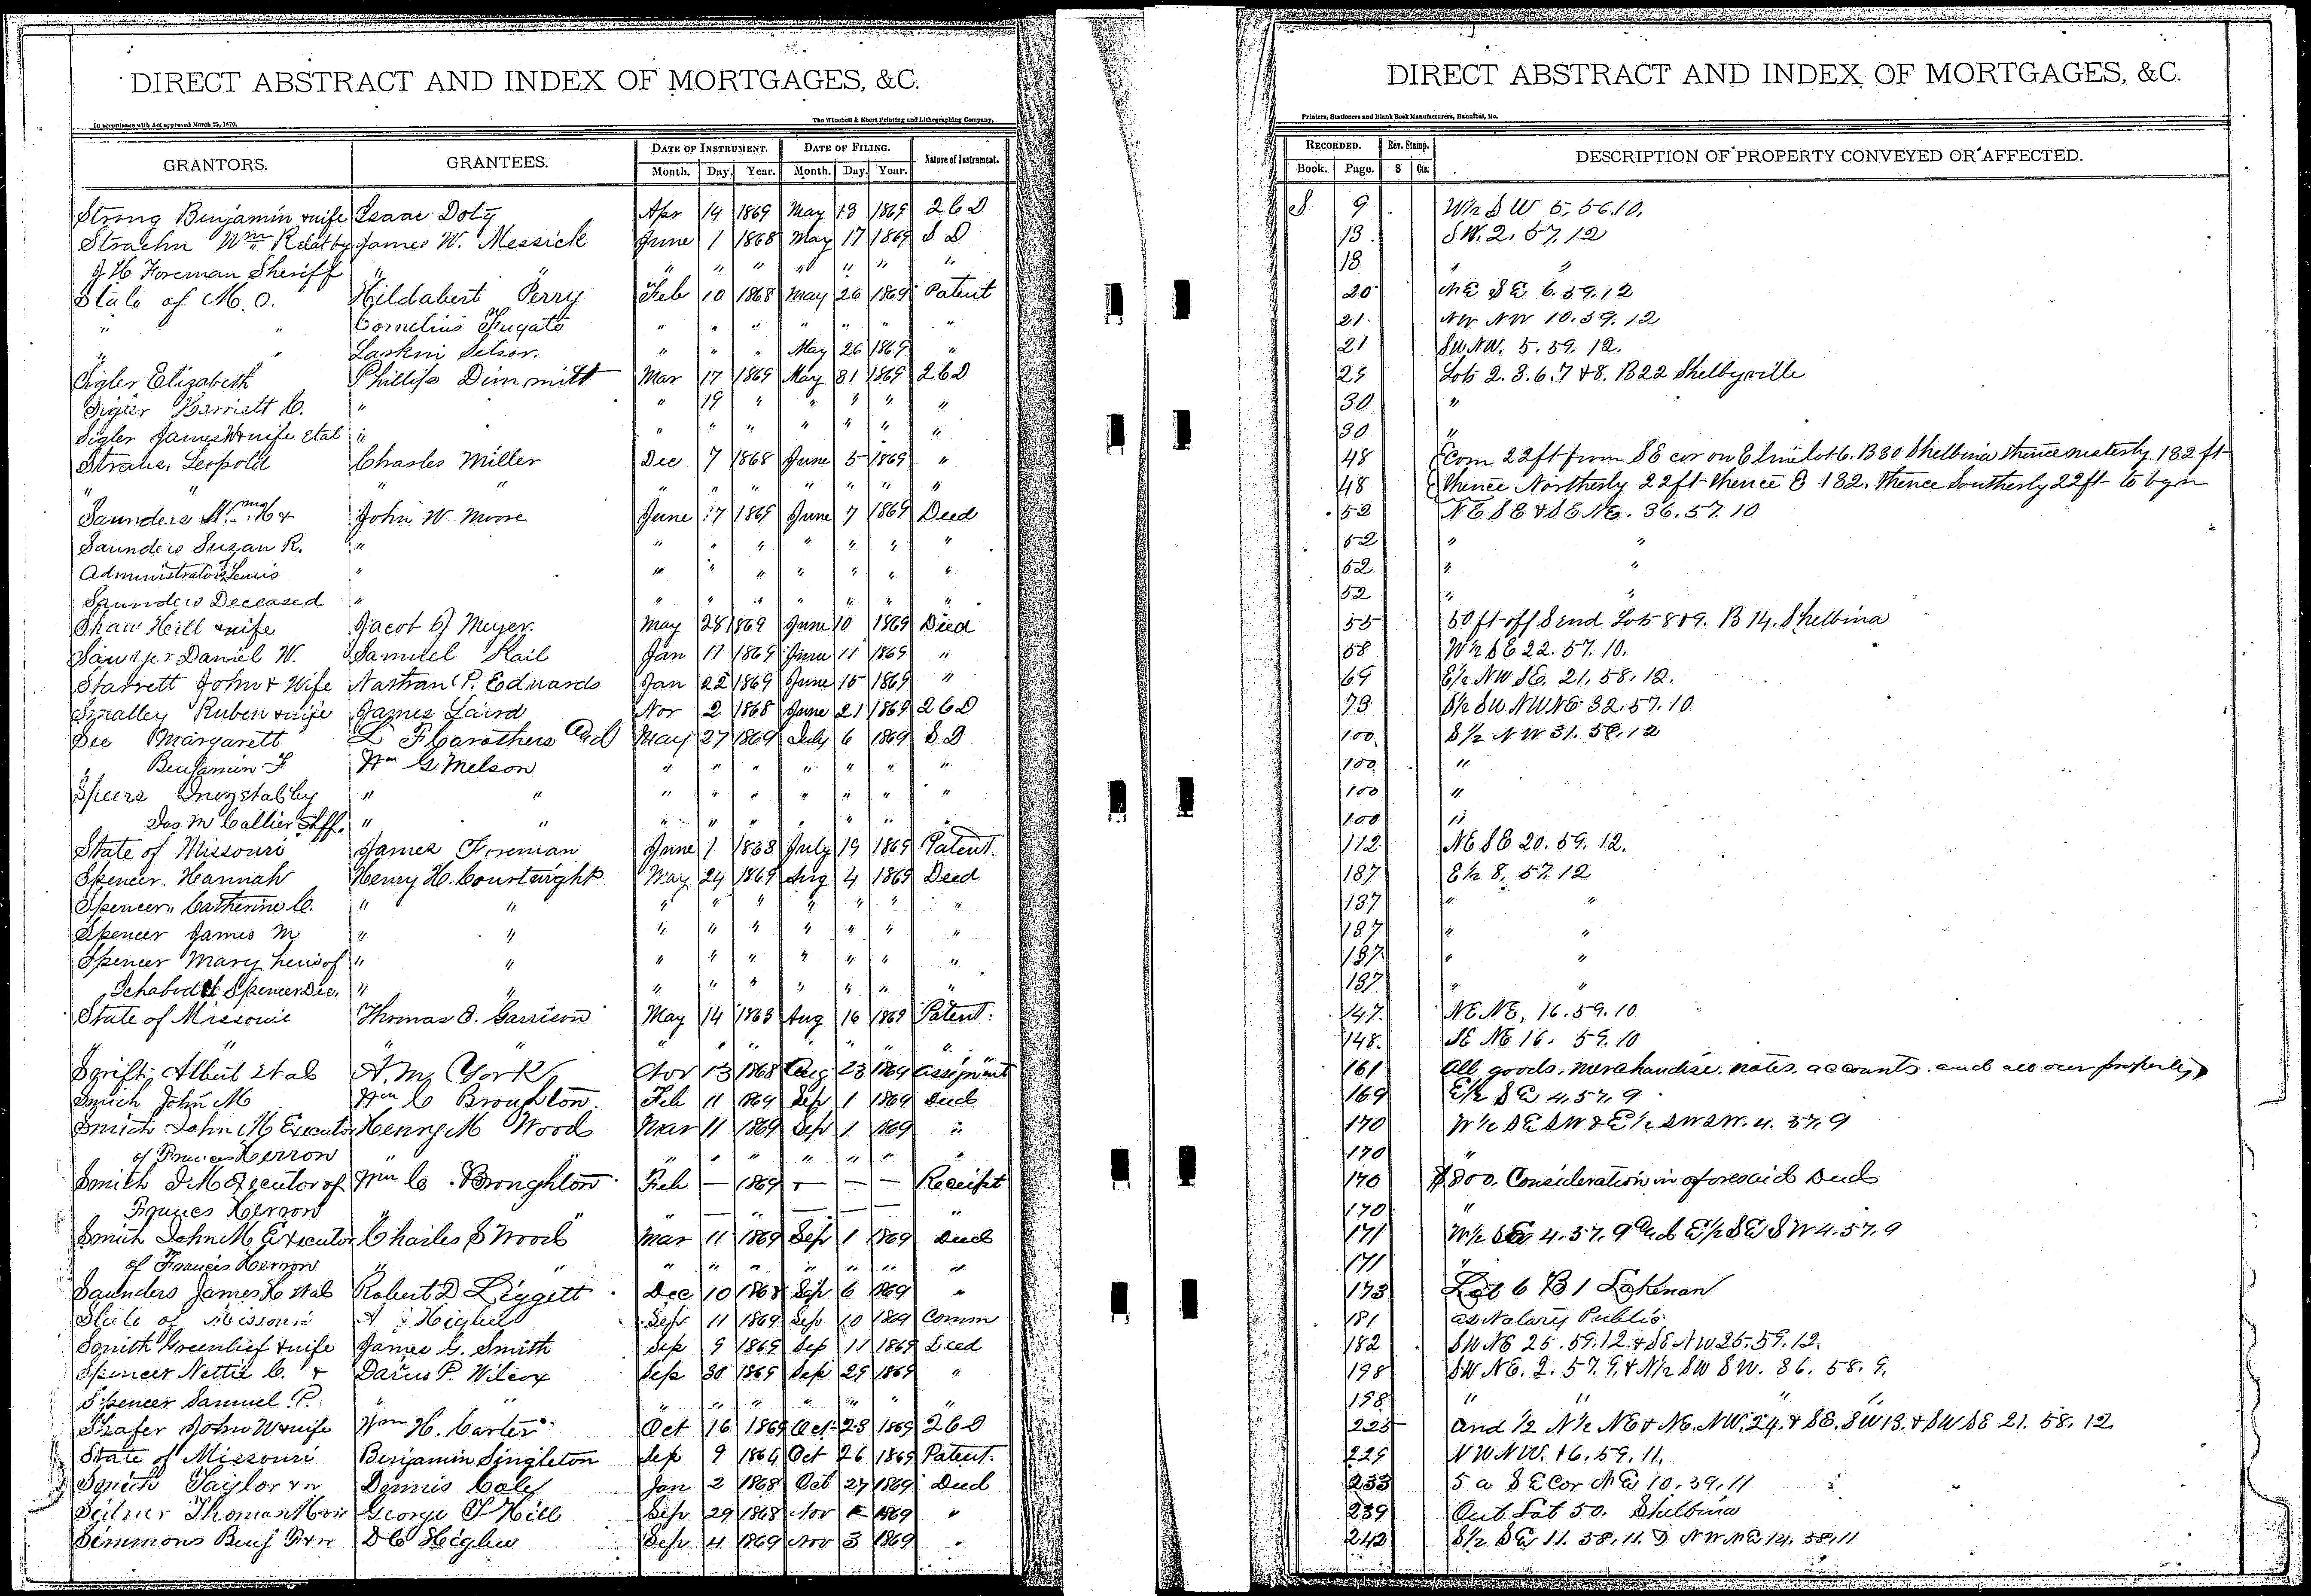 DIRECT ABSTRACT AND INDEX OF MORTGAGES, &C.
In accordance with Act approved March 25, 1870. The Winchell & Ebert Printing and Lithographing Company,
GRANTORS. GRANTEES. DATE OF INSTRUMENT. DATE OF FILING. Nature of Instrument.
Month. Day. Year. Month. Day. Year.
Strong Benjamin & wife Isaac Doty Apr 14 1869 May 13 1869 2 6 D
Strachn Wm R etal by James W. Messick June 1 1868 May 17 1869 S D
J H Foreman Sheriff " " " " " " " " "
State of M.O. Hildabert Perry Feb 10 1868 May 26 1869 Patent
" " Cornelius Fugate " " " " " " "
" " Laskin Selsor. " " " May 26 1869 "
Sigler Elizabeth Phillip Dimmitt Mar 17 1869 May 31 1869 2 6 D
Sigler Harriett C. " " 19 " " " " "
Sigler James W & wife etal " " " " " " " "
Straus, Leopold Charles Miller Dec 7 1868 June 5 1869 "
" " " " " " " " " " "
Saunders John W. Moore June 17 1869 June 7 1869 Deed
Saunders Suzan R. " " " " " " " "
Administrators Lewis " " " " " " " "
Saunders Deceased " " " " " " " "
Shaw Hill & wife Jacob J Meyer. May 28 1869 June 10 1869 Deed
Sawyer Daniel W. Samuel Kail Jan 11 1869 June 11 1869 "
Starrett John & Wife Nathan P. Edwards Jan 22 1869 June 15 1869 "
Smalley Ruben & wife James Laird Nov 2 1868 June 21 1869 2 6 D
See Margarett L F Carothers And May 27 1869 July 6 1869 S D
" Benjamin F Wm G Melson " " " " " " "
Speers etal by " " " " " " " " "
Jas M Collier Shff. " " " " " " " "
State of Missouri James Foreman June 1 1868 July 19 1869 Patent.
Spencer. Hannah Henry H. Courtwright May 24 1869 Aug 4 1869 Deed
Spencer, Catherine C. " " " " " " " " "
Spencer James M " " " " " " " " "
Spencer Mary heirs of " " " " " " " " "
Ichabod Spencer Dec. " " " " " " " " "
State of Missouri Thomas O. Garrison May 14 1868 Aug 16 1869 Patent.
" " " " " " " "
Swift Albert et als A. M. York Nov 13 1868 Aug 23 1869 assignment
Smith John M Wm C Broughton Feb 11 1869 Sep 1 1869 Deed
Smith John M Executor Henry M Wood Mar 11 1869 Sep 1 1869 "
of Frances Herron " " " " " " " "
Smith J M Executor of Wm C. Broughton Feb — 1869 — — — Receipt
Frances Herron " " — " — — — "
Smith John M Executor Charles S Wood Mar 11 1869 Sep 1 1869 Deed
of Francis Herron " " " " " " " " "
Saunders James H et als Robert D Liggett Dec 10 1868 Sep 6 1869 "
State of Missouri Higbee Sep 11 1869 Sep 10 1869 Comm
Smith Greenlief & wife James G. Smith Sep 9 1869 Sep 11 1869 Deed
Spencer Nettie C. & Darius P. Wilcox Sep 30 1869 Sep 29 1869 "
Spencer Samuel P. " " " " " " " " "
Shafer John W & wife Wm H. Carter Oct 16 1869 Oct 23 1869 2 6 D
State of Missouri Benjamin Singleton Sep 9 1864 Oct 26 1869 Patent.
Smith Taylor & w Dennis Jan 2 1868 Oct 27 1869 Deed
Thomas George Hill Sep 29 1868 Nov 1869 "
Simmons Benj & w D C Higbee Sep 4 1869 Nov 3 1869 "
DIRECT ABSTRACT AND INDEX OF MORTGAGES, &C.
Printers, Stationers and Blank Book Manufacturers, Hannibal, Mo.
RECORDED. Rev. Stamp. DESCRIPTION OF PROPERTY CONVEYED OR AFFECTED.
Book. Page. $ Cts.
S 9 W½ S W 5. 56. 10.
13 S W. 2. 57. 12
13 " "
20 NE SE 6. 59. 12
21 NW NW 10. 59. 12
21 SW NW. 5. 59. 12.
29 Lots 2. 3. 6. 7 & 8. B 22 Shelbyville
30 "
30 "
48 Com 22 ft from SE cor on E line lot 6. B 30 Shelbina thence westerly 132 ft
48 thence Northerly 22 ft thence E 132. thence Southerly 22 ft to bgn
52 NE SE & SE NE. 36. 57. 10
52 " "
52 " "
52 " "
55 50 ft off S end Lots 8 & 9. B 14. Shelbina
58 W½ SE 22. 57. 10.
69 E½ NW SE. 21. 58. 12.
73 S½ SW NW NE 32. 57. 10
100 S½ NW 31. 58. 12
100 "
100 "
100 "
112 NE SE 20. 59. 12.
137 E½ 8. 57. 12
137 " "
137 " "
137 " "
137 " "
147. NE NE, 16. 59. 10
148. SE NE 16. 59. 10
161 All goods, merchandise, notes, accounts and all our property
169 E½ SE 4. 57. 9
170 W½ SE SW & E½ SW SW. 4. 57. 9
170 "
170 $800. Consideration in aforesaid Deed
170 "
171 W½ SE 4. 57. 9 And E½ SE SW 4. 57. 9
171 "
173 Lot 6 B 1 Lakenan
181 as Notary Public
182 SW NE 25. 59. 12. & SE NW 25. 59. 12.
198 SW NE. 2. 57. 9. & N½ SW SW. 36. 58. 9.
198 " " " "
225 And ½ N½ NE & NE. NW. 24. & SE. SW 13. & SW SE 21. 58. 12.
229 NW NW. 16. 59. 11.
233 5 a SE Cor NE 10. 59. 11
239 Out Lot 50. Shelbina
242 S½ SE 11. 58. 11. & NW NE 14. 58. 11